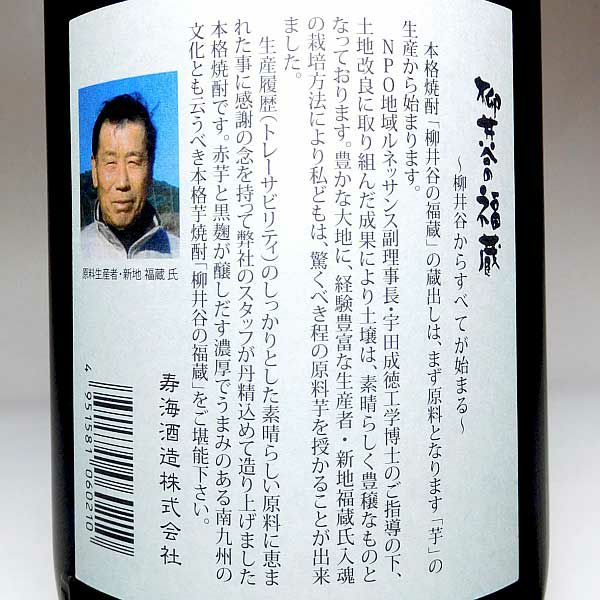 柳井谷の福蔵
～柳井谷からすべてが始まる～
本格焼酎「柳井谷の福蔵」の蔵出しは、まず原料となります「芋」の
生産から始まります。
NPO地域ルネッサンス副理事長・宇田成徳工学博士のご指導の下、
土地改良に取り組んだ成果により土壌は、素晴らしく豊穣なものと
なっております。豊かな大地に、経験豊富な生産者・新地福蔵氏入魂
の栽培方法により私どもは、驚くべき程の原料芋を授かることが出来
ました。
生産履歴(トレーサビリティ)のしっかりとした素晴らしい原料に恵ま
れた事に感謝の念を持って弊社のスタッフが丹精込めて造り上げました
本格焼酎です。赤芋と黒麹が醸しだす濃厚でうまみのある南九州の
文化とも云うべき本格芋焼酎「柳井谷の福蔵」をご堪能下さい。
寿海酒造株式会社
原料生産者・新地 福蔵 氏
4 951581 060210